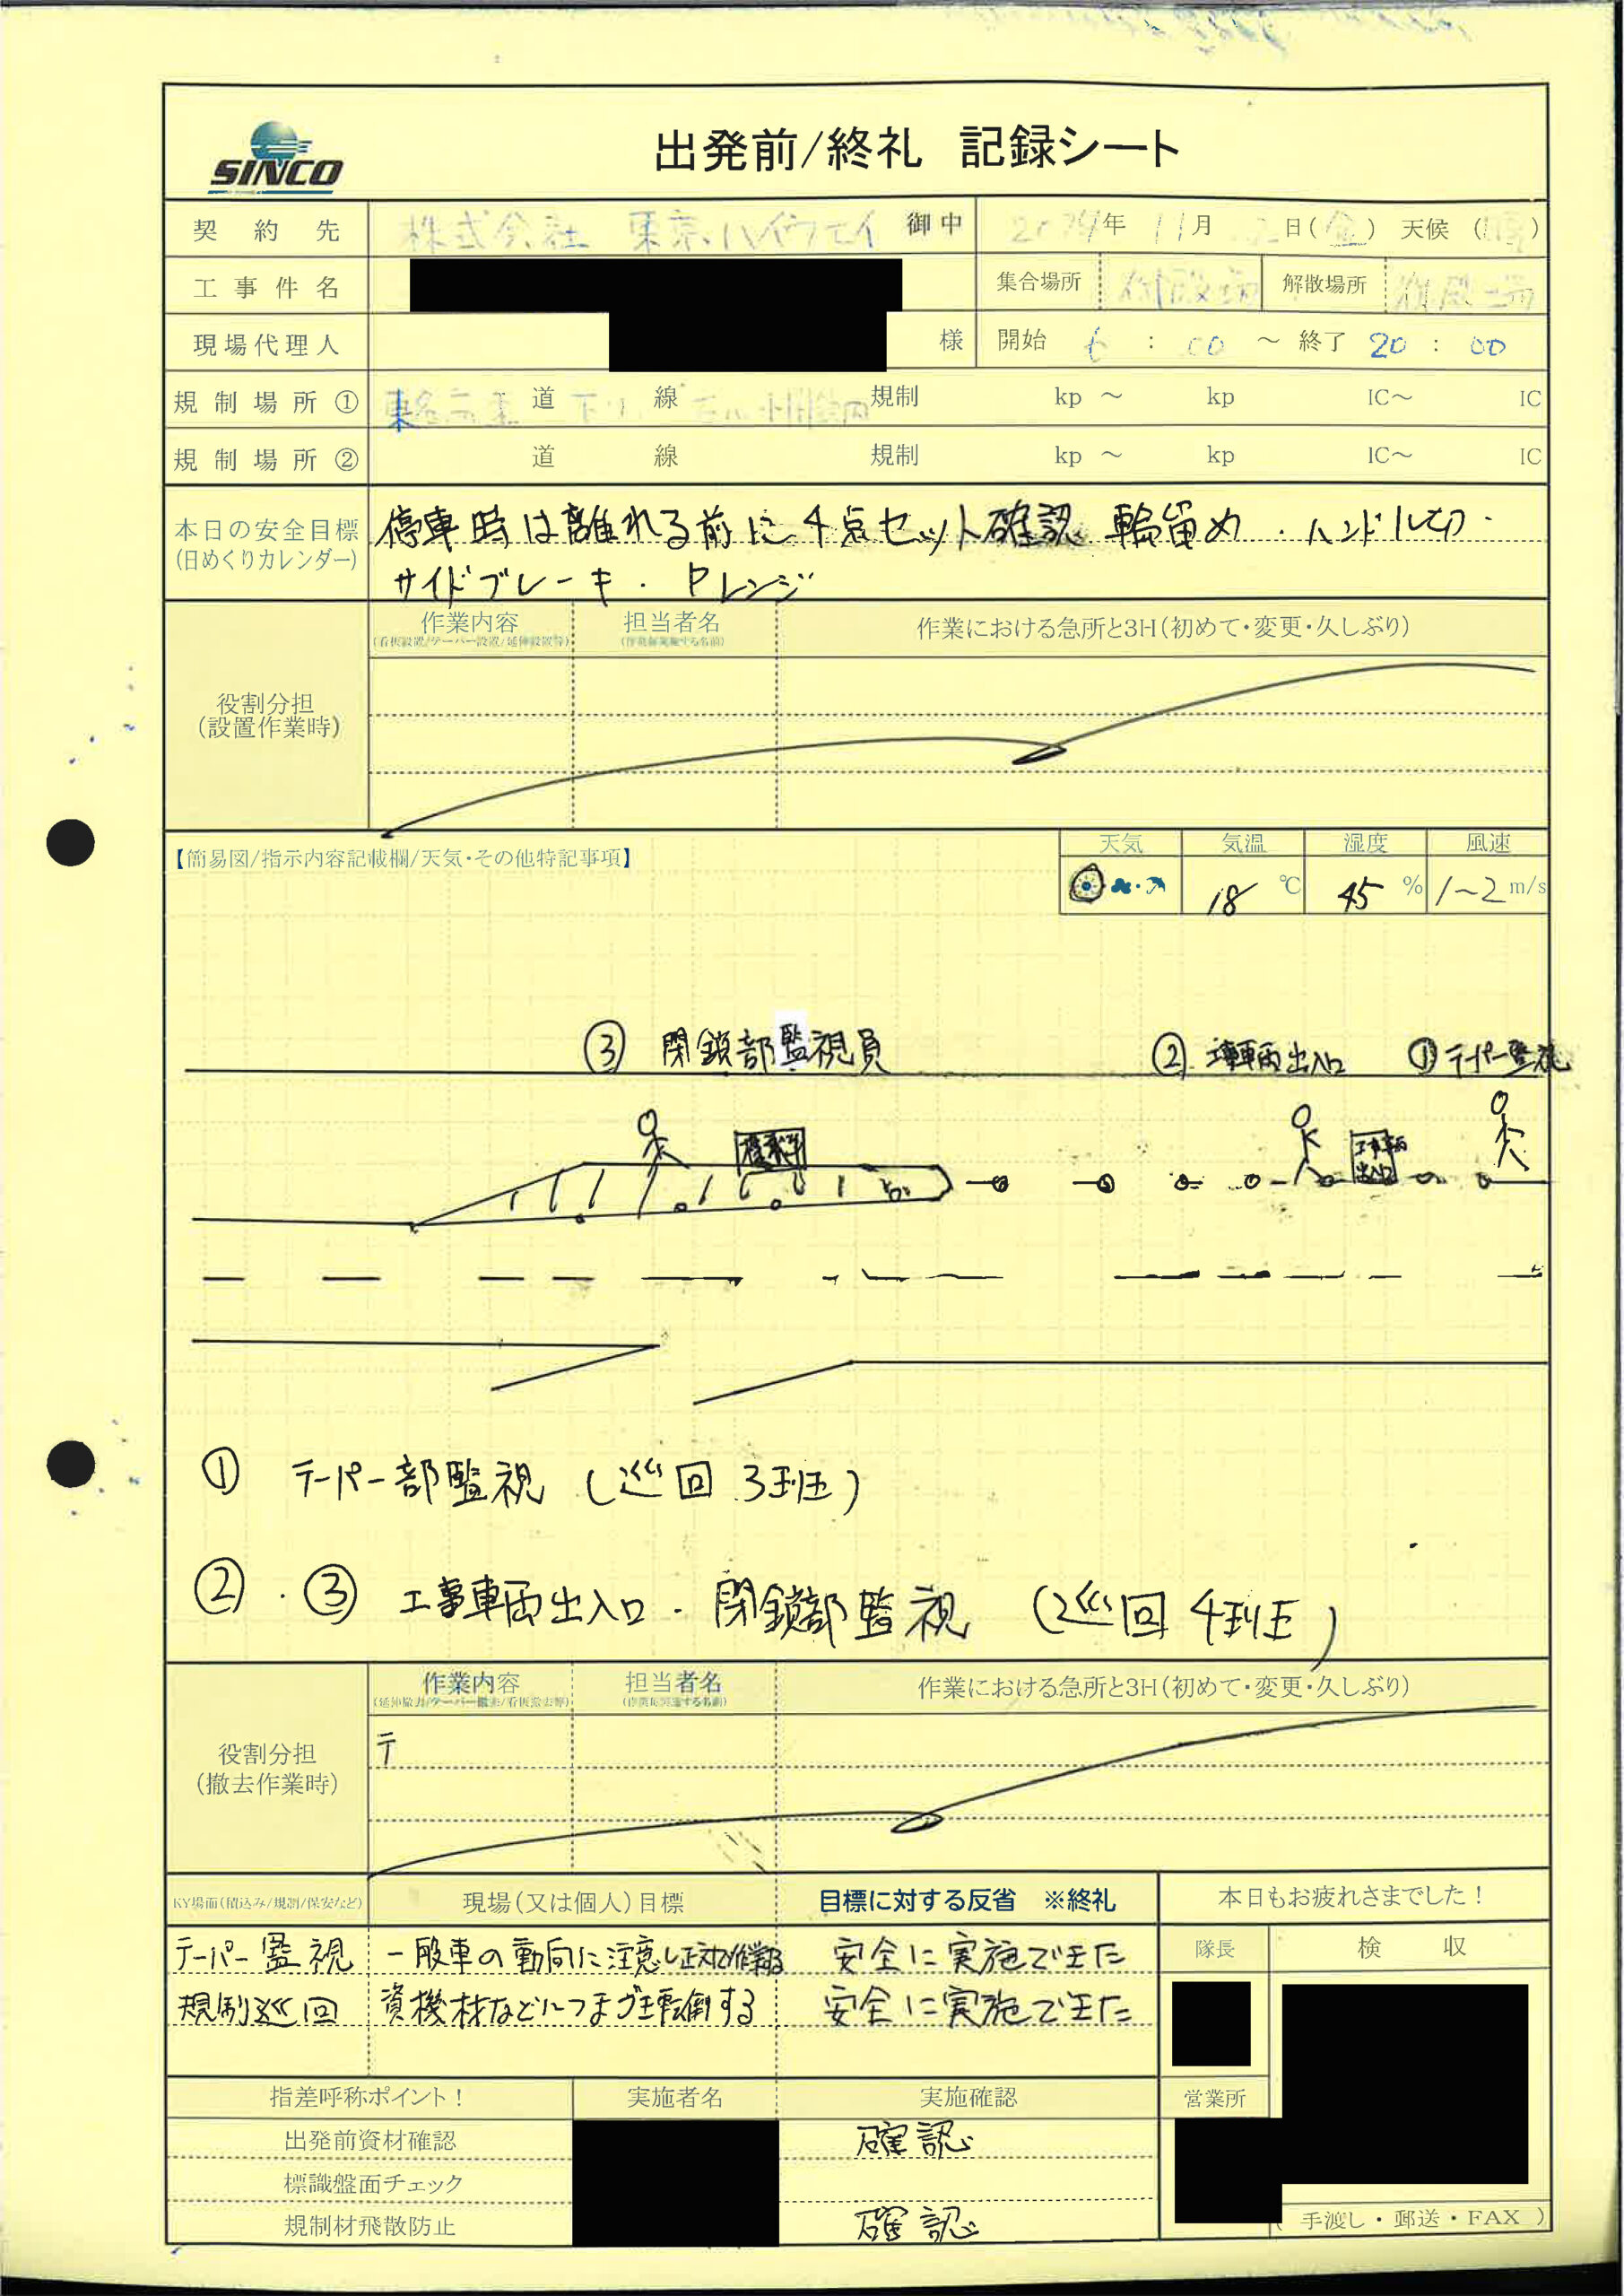 SINCO
出発前/終礼 記録シート
契約先 株式会社 東京ハイウェイ 御中 年 11月 日( ) 天候 ( )
工事件名 集合場所 解散場所
現場代理人 様 開始 6 : 00 ～ 終了 20 : 00
規制場所① 東名 道 下り 線 規制 kp ～ kp IC～ IC
規制場所② 道 線 規制 kp ～ kp IC～ IC
本日の安全目標 停車時は離れる前に4点セット確認 輪留め・ハンドル切・
(日めくりカレンダー) サイドブレーキ・Pレンジ
作業内容 担当者名 作業における急所と3H(初めて・変更・久しぶり)
(看板設置/テーパー設置/延伸設置等)
役割分担
(設置作業時)
【簡易図/指示内容記載欄/天気・その他特記事項】
天気 気温 湿度 風速
18 ℃ 45 % 1～2 m/s
③ 閉鎖部監視員 ② 工事車両出入口 ① テーパー監視
標示車 工事車両
出入口
① テーパー部監視 (巡回 3班)
②・③ 工事車両出入口・閉鎖部監視 (巡回 4班)
作業内容 担当者名 作業における急所と3H(初めて・変更・久しぶり)
(延伸撤去/テーパー撤去/看板撤去等)
テ
役割分担
(撤去作業時)
KY場面(積込み/規制/保安など) 現場(又は個人)目標 目標に対する反省 ※終礼 本日もお疲れさまでした！
テーパー監視 一般車の動向に注意し正対で作業する 安全に実施できた 隊長 検収
規制巡回 資機材などにつまずき転倒する 安全に実施できた
指差呼称ポイント！ 実施者名 実施確認 営業所
出発前資材確認 確認
標識盤面チェック
規制材飛散防止 確認
( 手渡し・郵送・FAX )